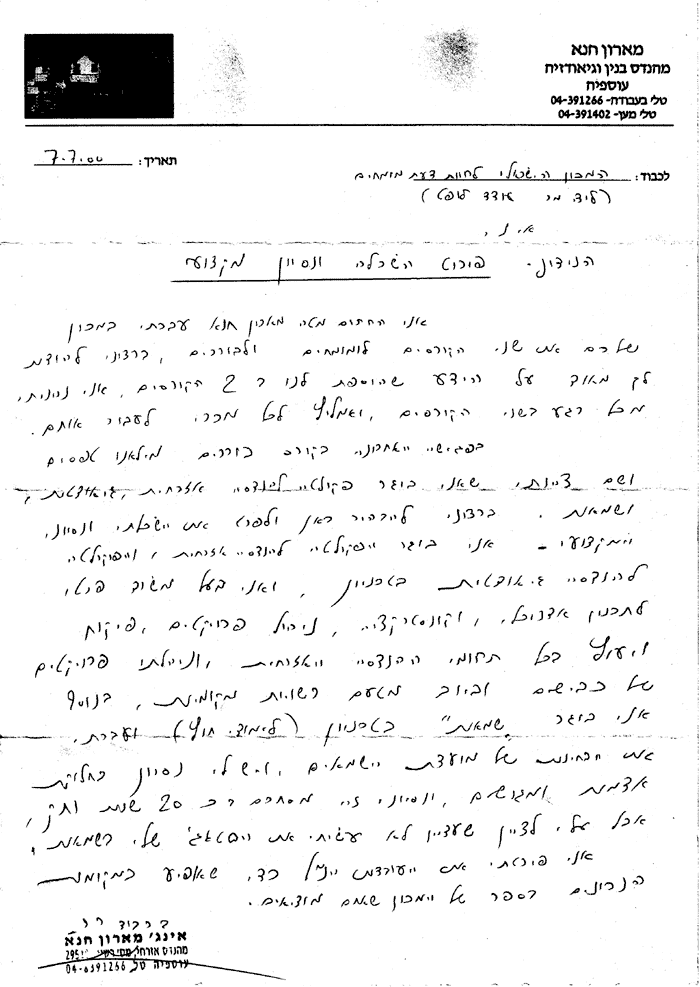 מארון חנא
מהנדס בנין וגיאודזיה
עוספיה
טלי בעבודה- 04-391266
טלי מען- 04-391402
תאריך: 7.7.00
לכבוד: המכון הישראלי לחוות דעת מומחים
(לידי מר עודד
א.נ,
הנידון- פירוט השכלה ונסיון מקצועי
אני החתום מטה מארון חנא עברתי במכון
שלכם את שני הקורסים למומחים ולבוררים, ברצוני להודות
לך מאוד על הידע שהוספת לנו ב 2 הקורסים, אני נהנית,
מכל רגע בשני הקורסים, ואמליץ לכל מכרי לעבור אותם.
בפגישה האחרונה בקורס בוררים מילאנו טפסים
ושם ציינתי שאני בוגר פקולטה להנדסה אזרחית, גיאודטית,
ושמאות. ברצוני להבהיר כאן ולפרט את השכלתי ונסיוני
המקצועי - אני בוגר הפקולטה להנדסה אזרחית, והפקולטה
להנדסה גיאודטית בטכניון, ואני בעל משרד פרטי
לתכנון אדריכלי, וקונסטרקציה, ניהול פרויקטים, פיקוח
ויעוץ בכל תחומי ההנדסה האזרחית, וניהלתי פרויקטים
של כבישים וביוב מטעם רשויות מקומיות, בנוסף
אני בוגר "שמאות" בטכניון (לימודי חוץ) ועברתי
את הבחינות של מועצת השמאים, ויש לי נסיון בחלוקת
אדמות ומגרשים, ונסיוני זה מסתכם ב כ 20 שנות ותק,
אבל עלי לציין שעדיין לא עשיתי את הסטאג' שלי בשמאות,
אני פירטתי את העובדות הנ"ל כדי שאופיע במקומות
הנכונים בספר של המכון שאתם מוציאים.
בכבוד רב
אינג' מארון חנא
מהנדס אזרחי
עוספיה טל. 04-8391266